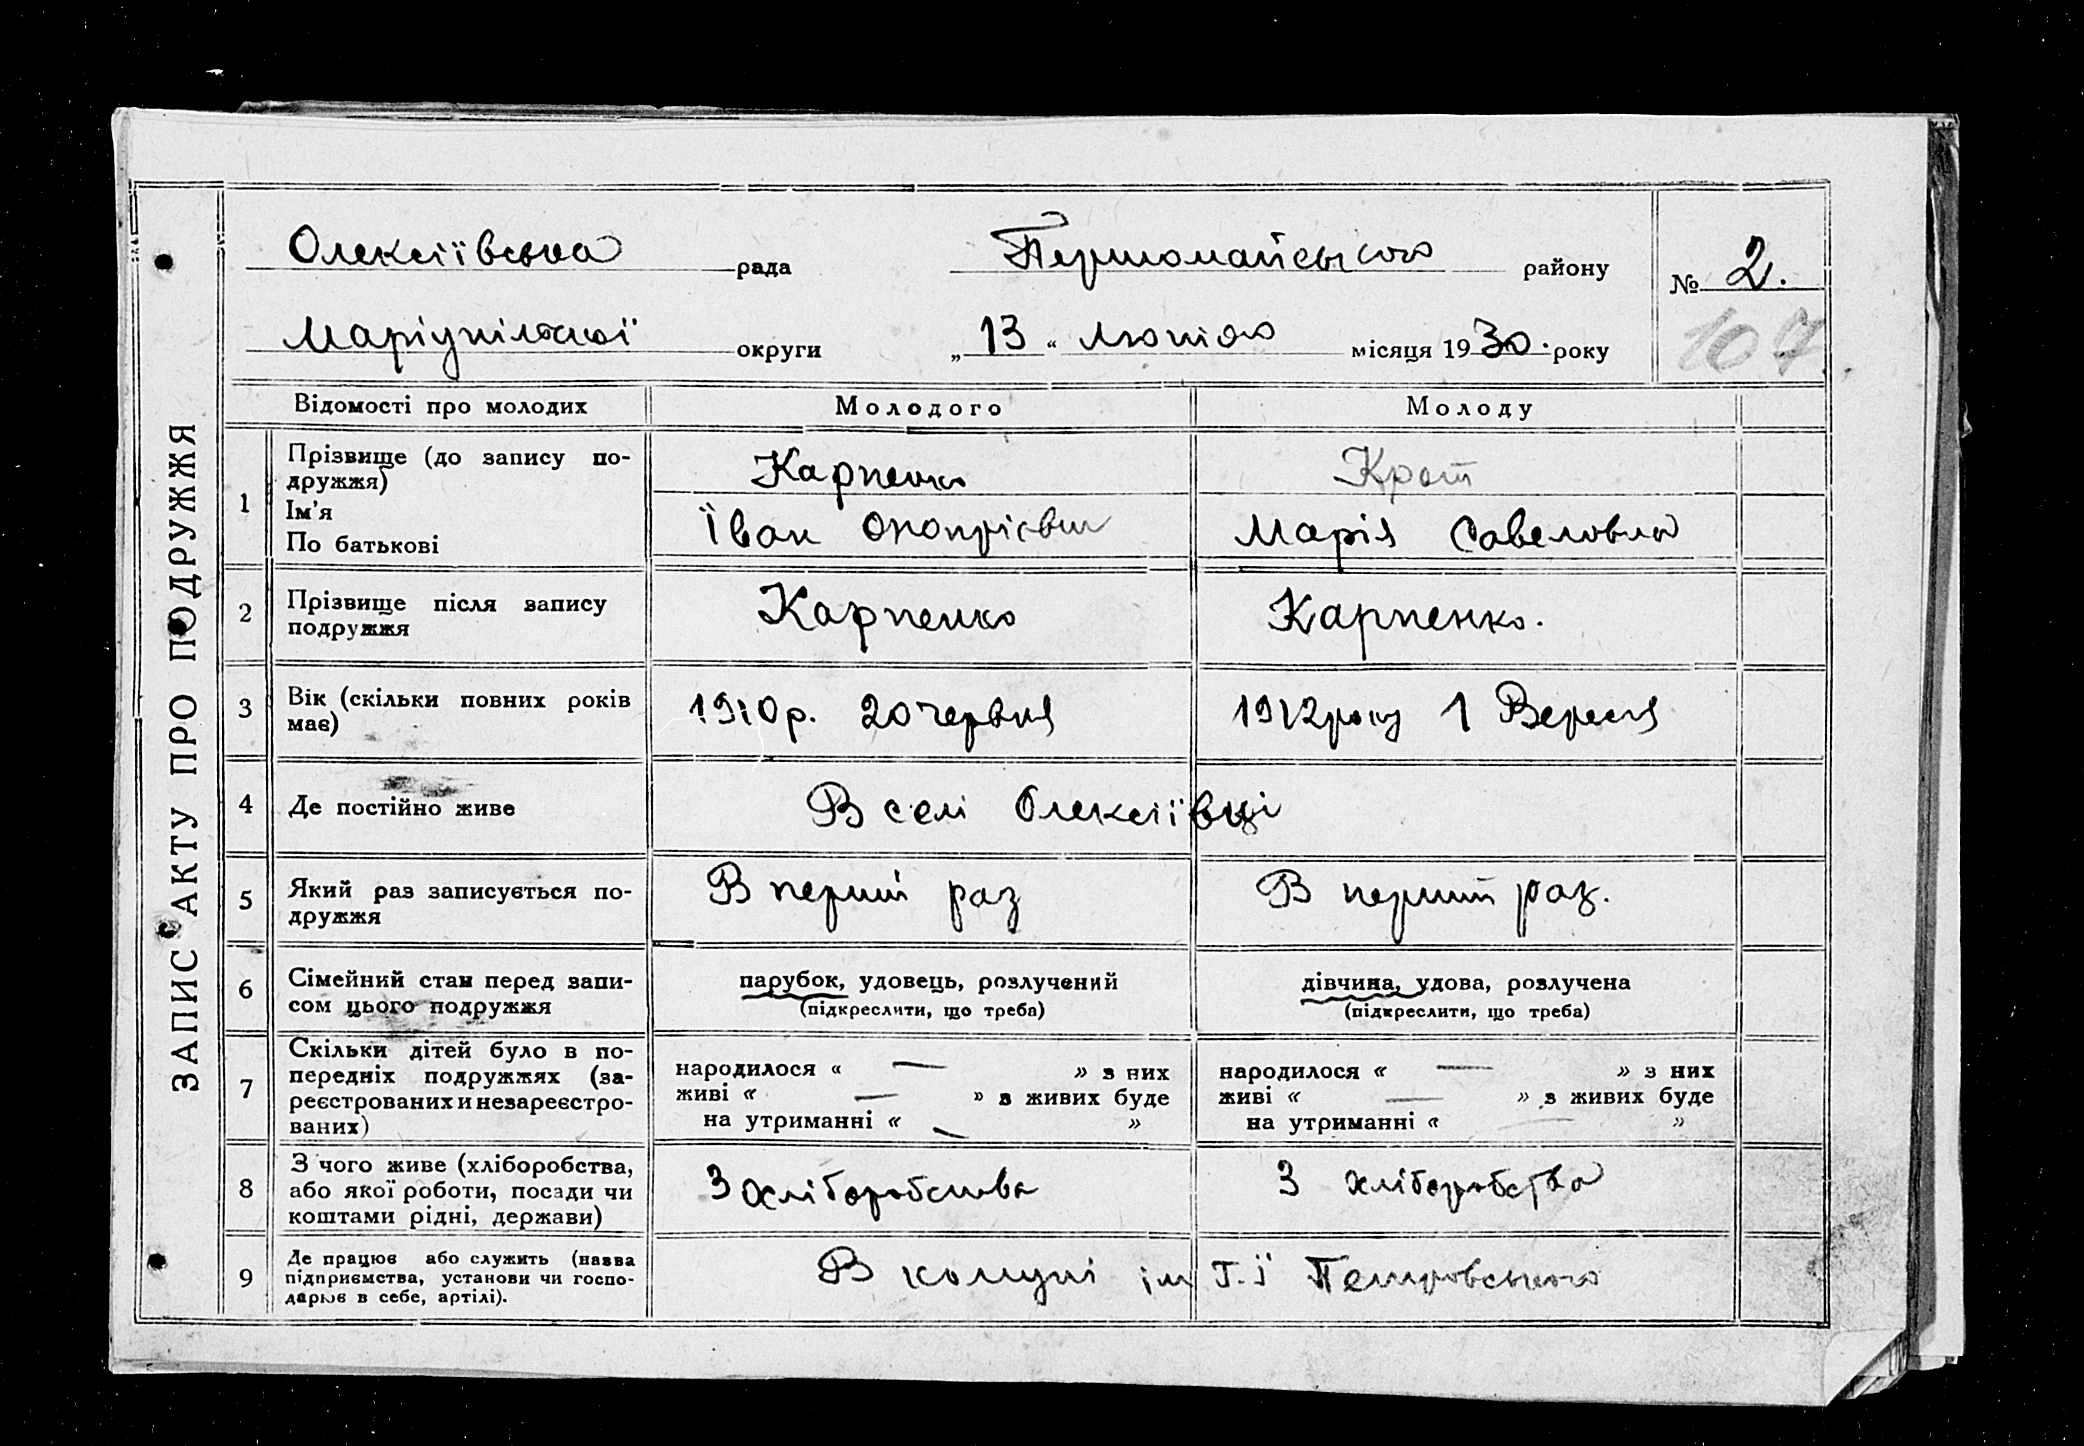 ЗАПИС АКТУ ПРО ПОДРУЖЖЯ
Олексіївська рада Першомайського району № 2.
Маріупільської округи „13“ лютого місяця 1930. року
107
Відомості про молодих Молодого Молоду
1 Прізвище (до запису по-
дружжя) Карпенко Крот
Ім'я
По батькові Їван Онопрієвич Марія Савеловна
2 Прізвище після запису
подружжя Карпенко Карпенко.
3 Вік (скільки повних років
має) 1910 р. 20 червня 1912 року 1 Вересня
4 Де постійно живе В селі Олексіївці
5 Який раз записується по-
дружжя В перший раз В перший раз.
6 Сімейний стан перед запи-
сом цього подружжя парубок, удовець, розлучений дівчина, удова, розлучена
(підкреслити, що треба) (підкреслити, що треба)
7 Скільки дітей було в по-
передніх подружжях (за-
реєстрованих и незареєстро-
ваних)
народилося « — » з них народилося « — » з них
живі « — » з живих буде живі « — » з живих буде
на утриманні « — » на утриманні « — »
8 З чого живе (хліборобства,
або якої роботи, посади чи
коштами рідні, держави) З хліборобства З хліборобства
9 Де працює або служить (назва
підприємства, установи чи госпо-
дарює в себе, артілі). В комуні ім Г. Ї Петровського